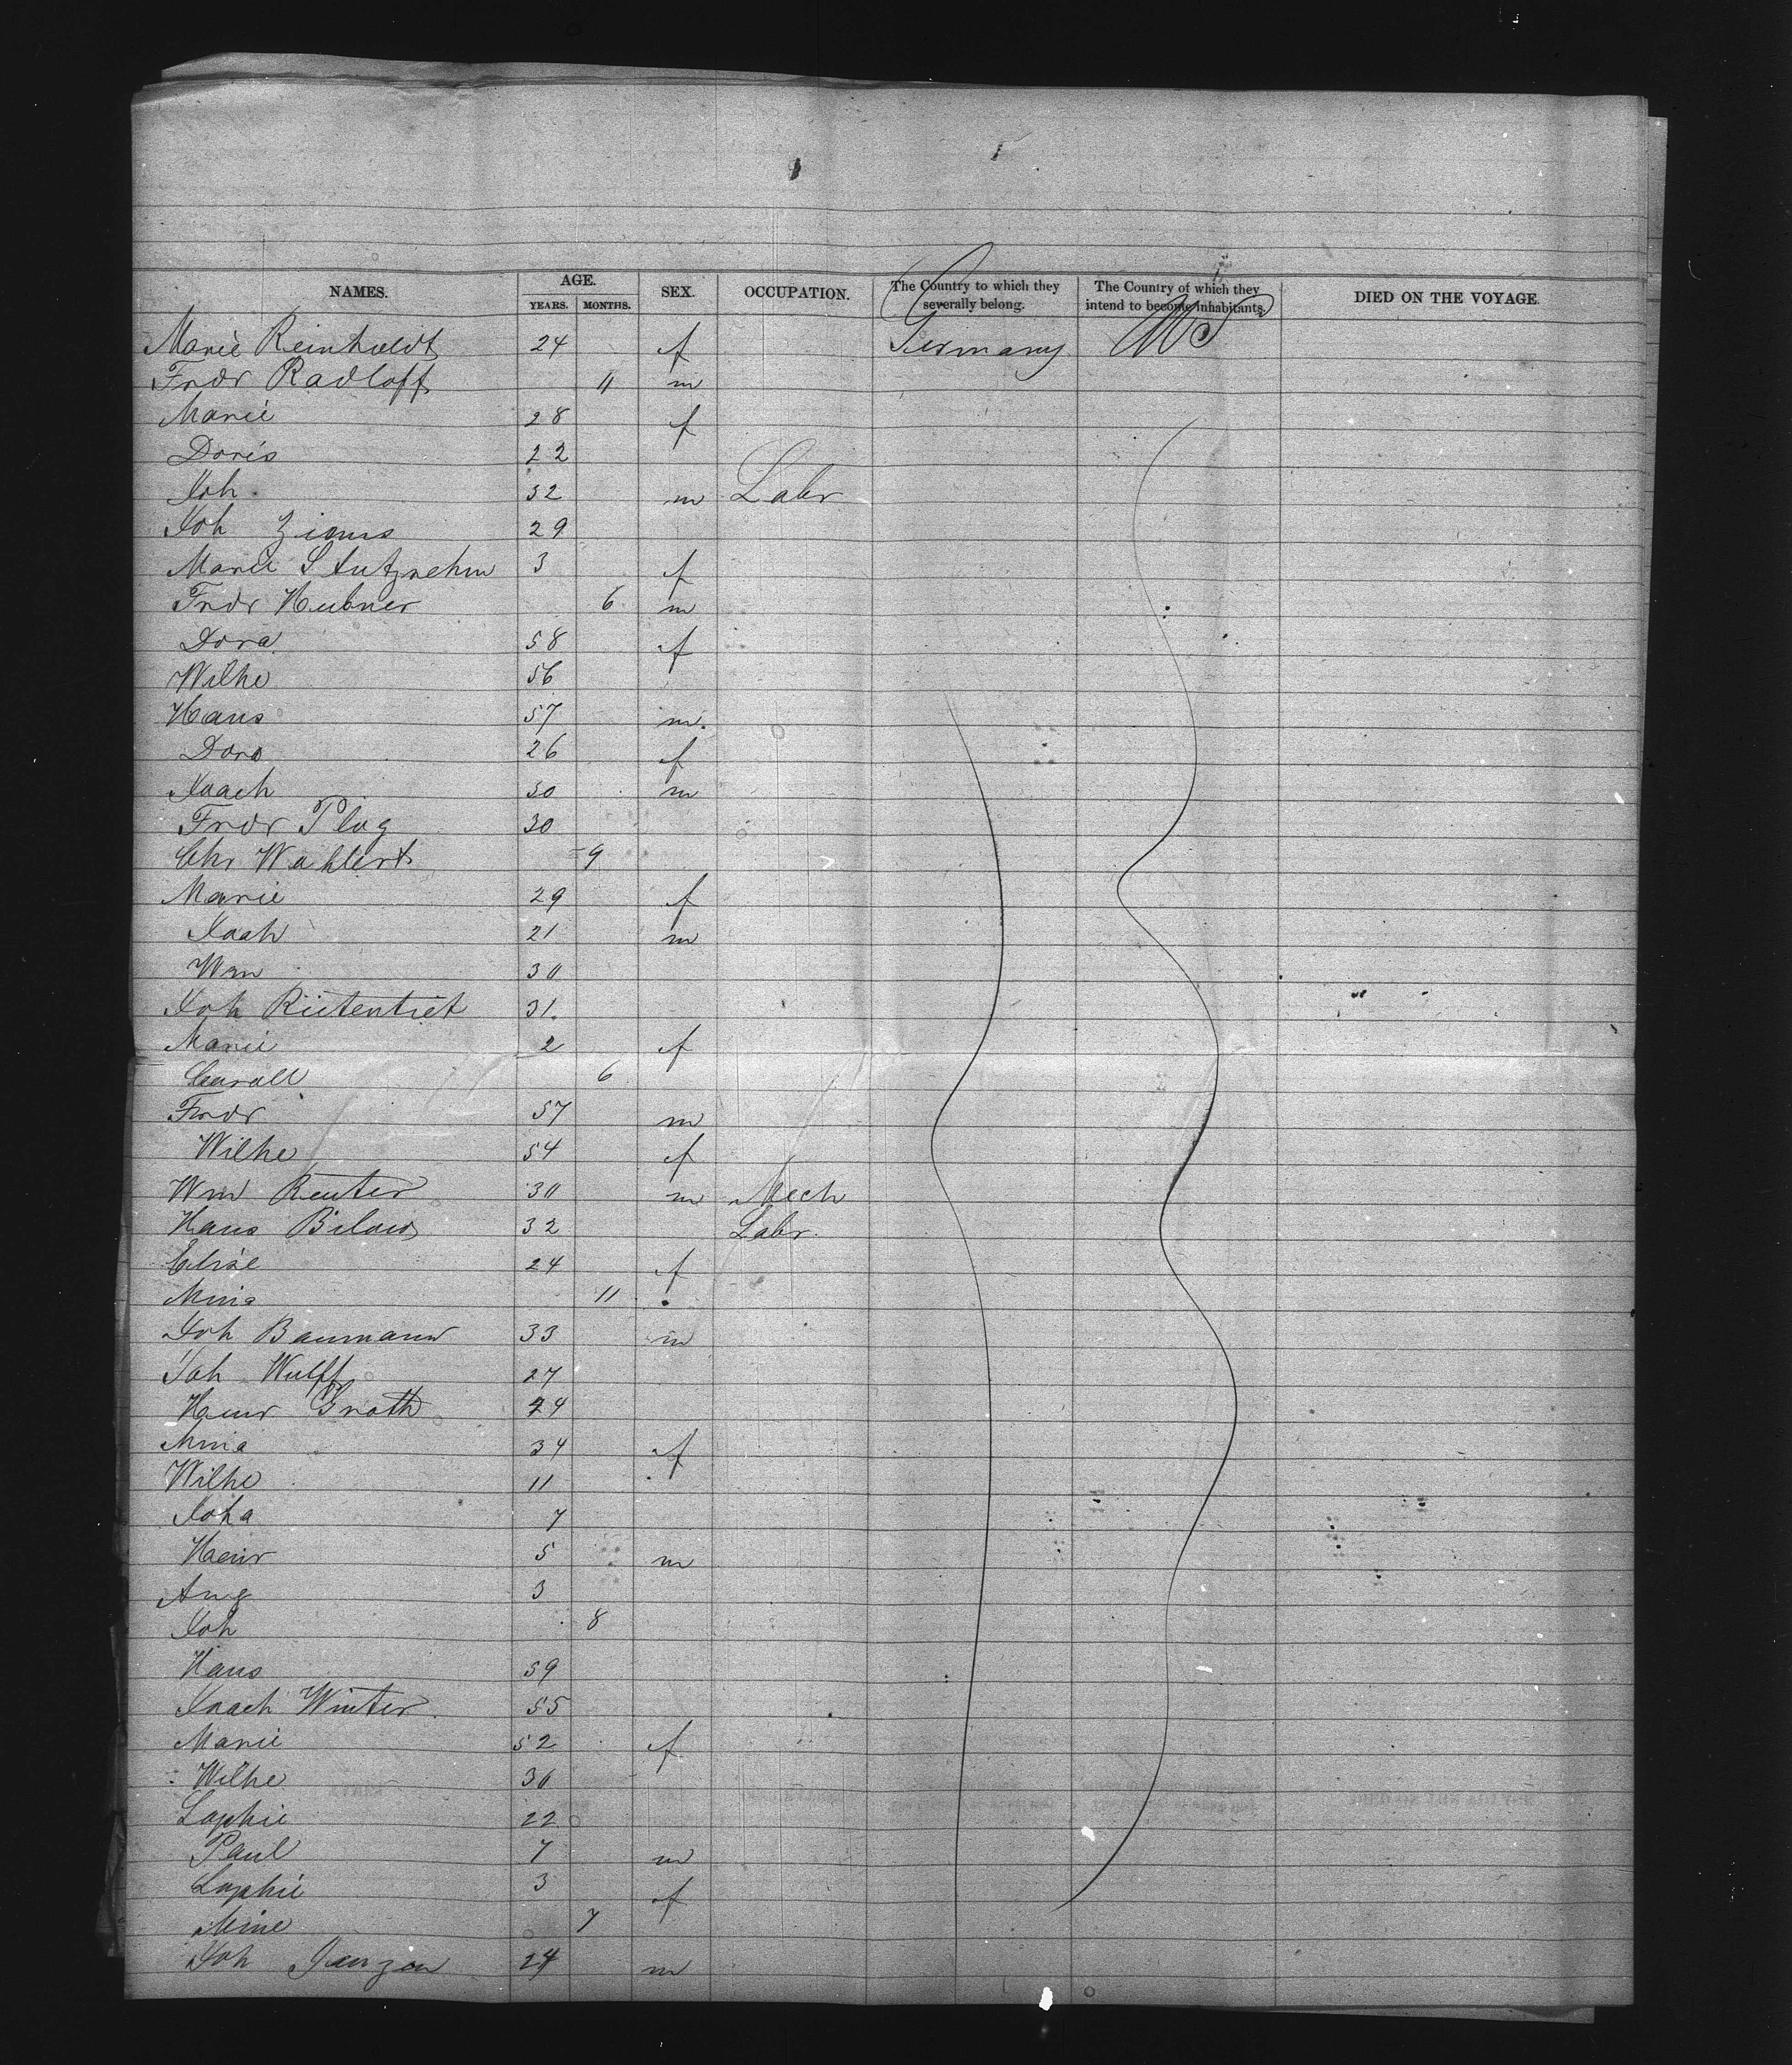 NAMES. AGE. YEARS. MONTHS. SEX. OCCUPATION. The Country to which they severally belong. The Country of which they intend to become inhabitants. DIED ON THE VOYAGE.
Marie Reinholdt 24 f Germany US
Fredr Radloff 11 m
Marie 28 f
Doris 22
Joh. 32 m Labr
Joh Ziems 29
Marie 3 f
Fredr Hubner 6 m
Dora 58 f
Wilhe 56
Hans 57 m
Dora 26 f
Joach 30 m
Fredr Plog 30
Chr Wahlert 9
Marie 29 f
Joach 21 m
Wm 30
Joh 31
Marie 2 f
6
Fredr 57 m
Wilhe 54 f
Wm Reuter 30 m Mech
Hans Bülow 32 Labr.
Elise 24 f
Mina 11
Joh Baumann 33 m
Joh Wulff 27
Heinr Groth 74
Mina 34 f
Wilhe 11
Joha 7
Heinr 5 m
Aug 3
Joh 8
Hans 59
Joach Winter 55
Marie 52 f
Wilhe 30
Sophie 22
Paul 7 m
Sophie 3 f
Mine 7
Joh Janzen 24 m